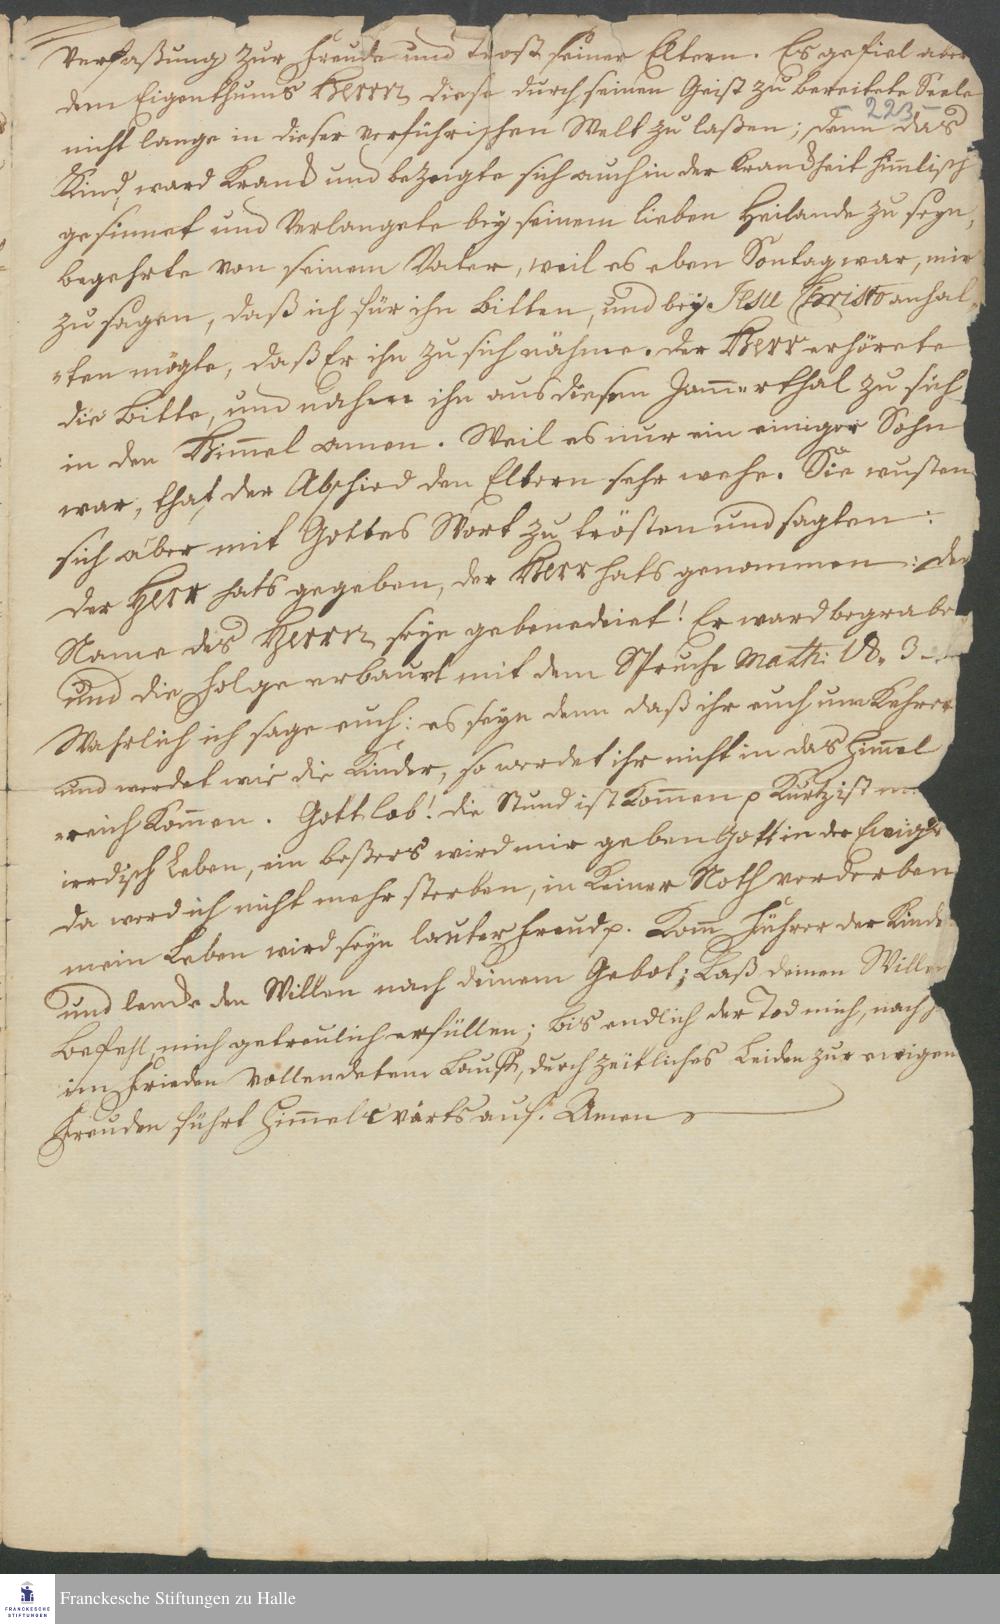 Verfaßung zur Freude und Trost seiner Eltern. Es gefiel aber
dem Eigenthums Herrn diese durch seinen Geist zu bereitete Seele
223
nicht lange in dieser verführischen Welt zu laßen; denn das
Kind ward kranck und bezeigte sich auch in der Kranckheit himlisch
gesinnet und verlangete bey seinem lieben Heilande zu seyn,
begehrte von seinem Vater, weil es eben Sontag war, mir
zu sagen, daß ich für ihn bitten, und bey Jesu Christo anhal-
-ten mögte, daß Er ihn zu sich nähme. der Herr erhörete
die Bitte, und nahm ihn aus diesen Jammerthal zu sich
in den Himmel amen. Weil es nur ein einiger Sohn
war, that der Abschied den Eltern sehr wehe. Sie wusten
sich aber mit Gottes Wort zu trösten und sagten:
der Herr hats gegeben, der Herr hats genommen: der
Name des Herrn seye gebenedeiet! Er ward begrabe
und die Folge erbauet mit dem Spruche Math: 18. 3
Wahrlich ich sage euch: es seye denn daß ihr euch um kehret
und werdet wie die Kinder, so werdet ihr nicht in das Himmel
-reich kommen. Gott lob! die Stund ist kommen p Kurtz ist m
irrdisch Leben, ein beßers wird mir geben Gott in der Ewigk
da werd ich nicht mehr sterben, in keiner Noth verderben
mein Leben wird seyn lauter Freud p. Komm Führer der Kinde
und lencke den Willen nach deinem Gebot; Laß deinen Willen
Befehl, mich getreulich erfüllen; bis endlich der Tod mich, nach
im Frieden vollendetem Lauff, durch zeitliches Leiden zur ewigen
Freuden führt Himmelwärts auf. Amen
Franckesche Stiftungen zu Halle
FRANCKESCHE
STIFTUNGEN